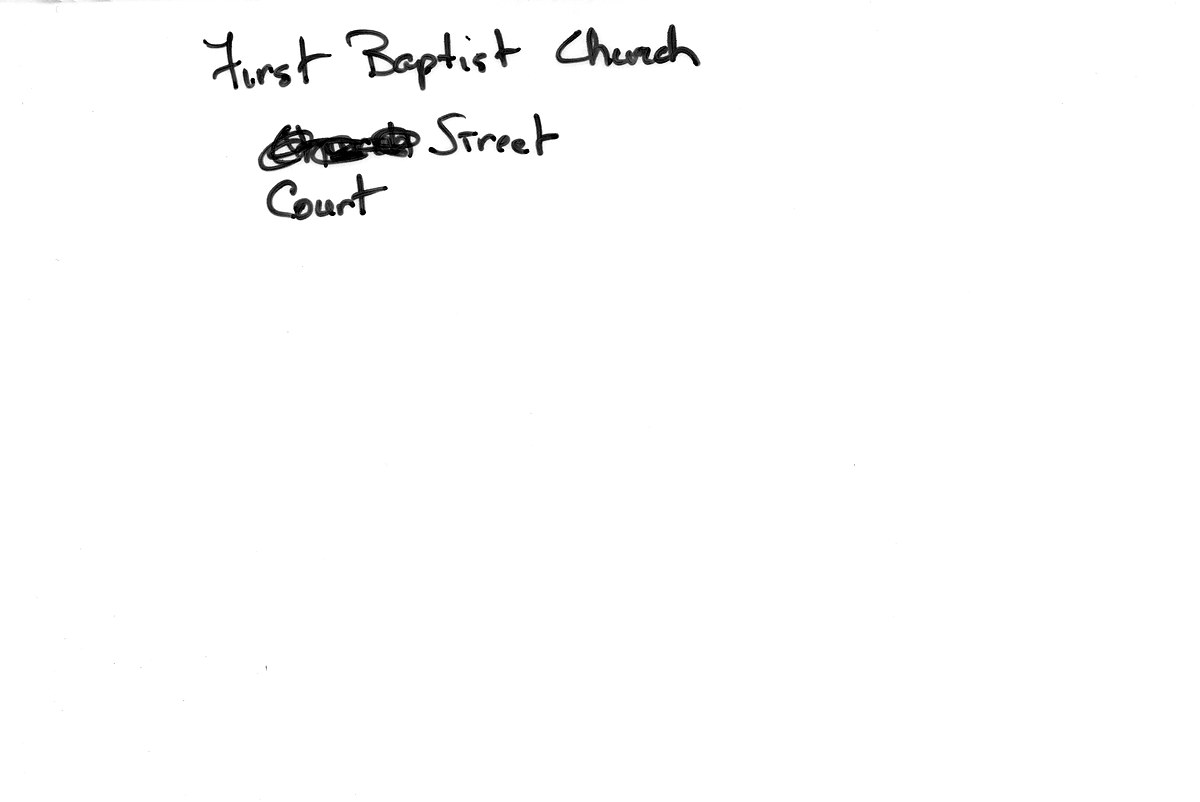 First Baptist Church
Street
Court